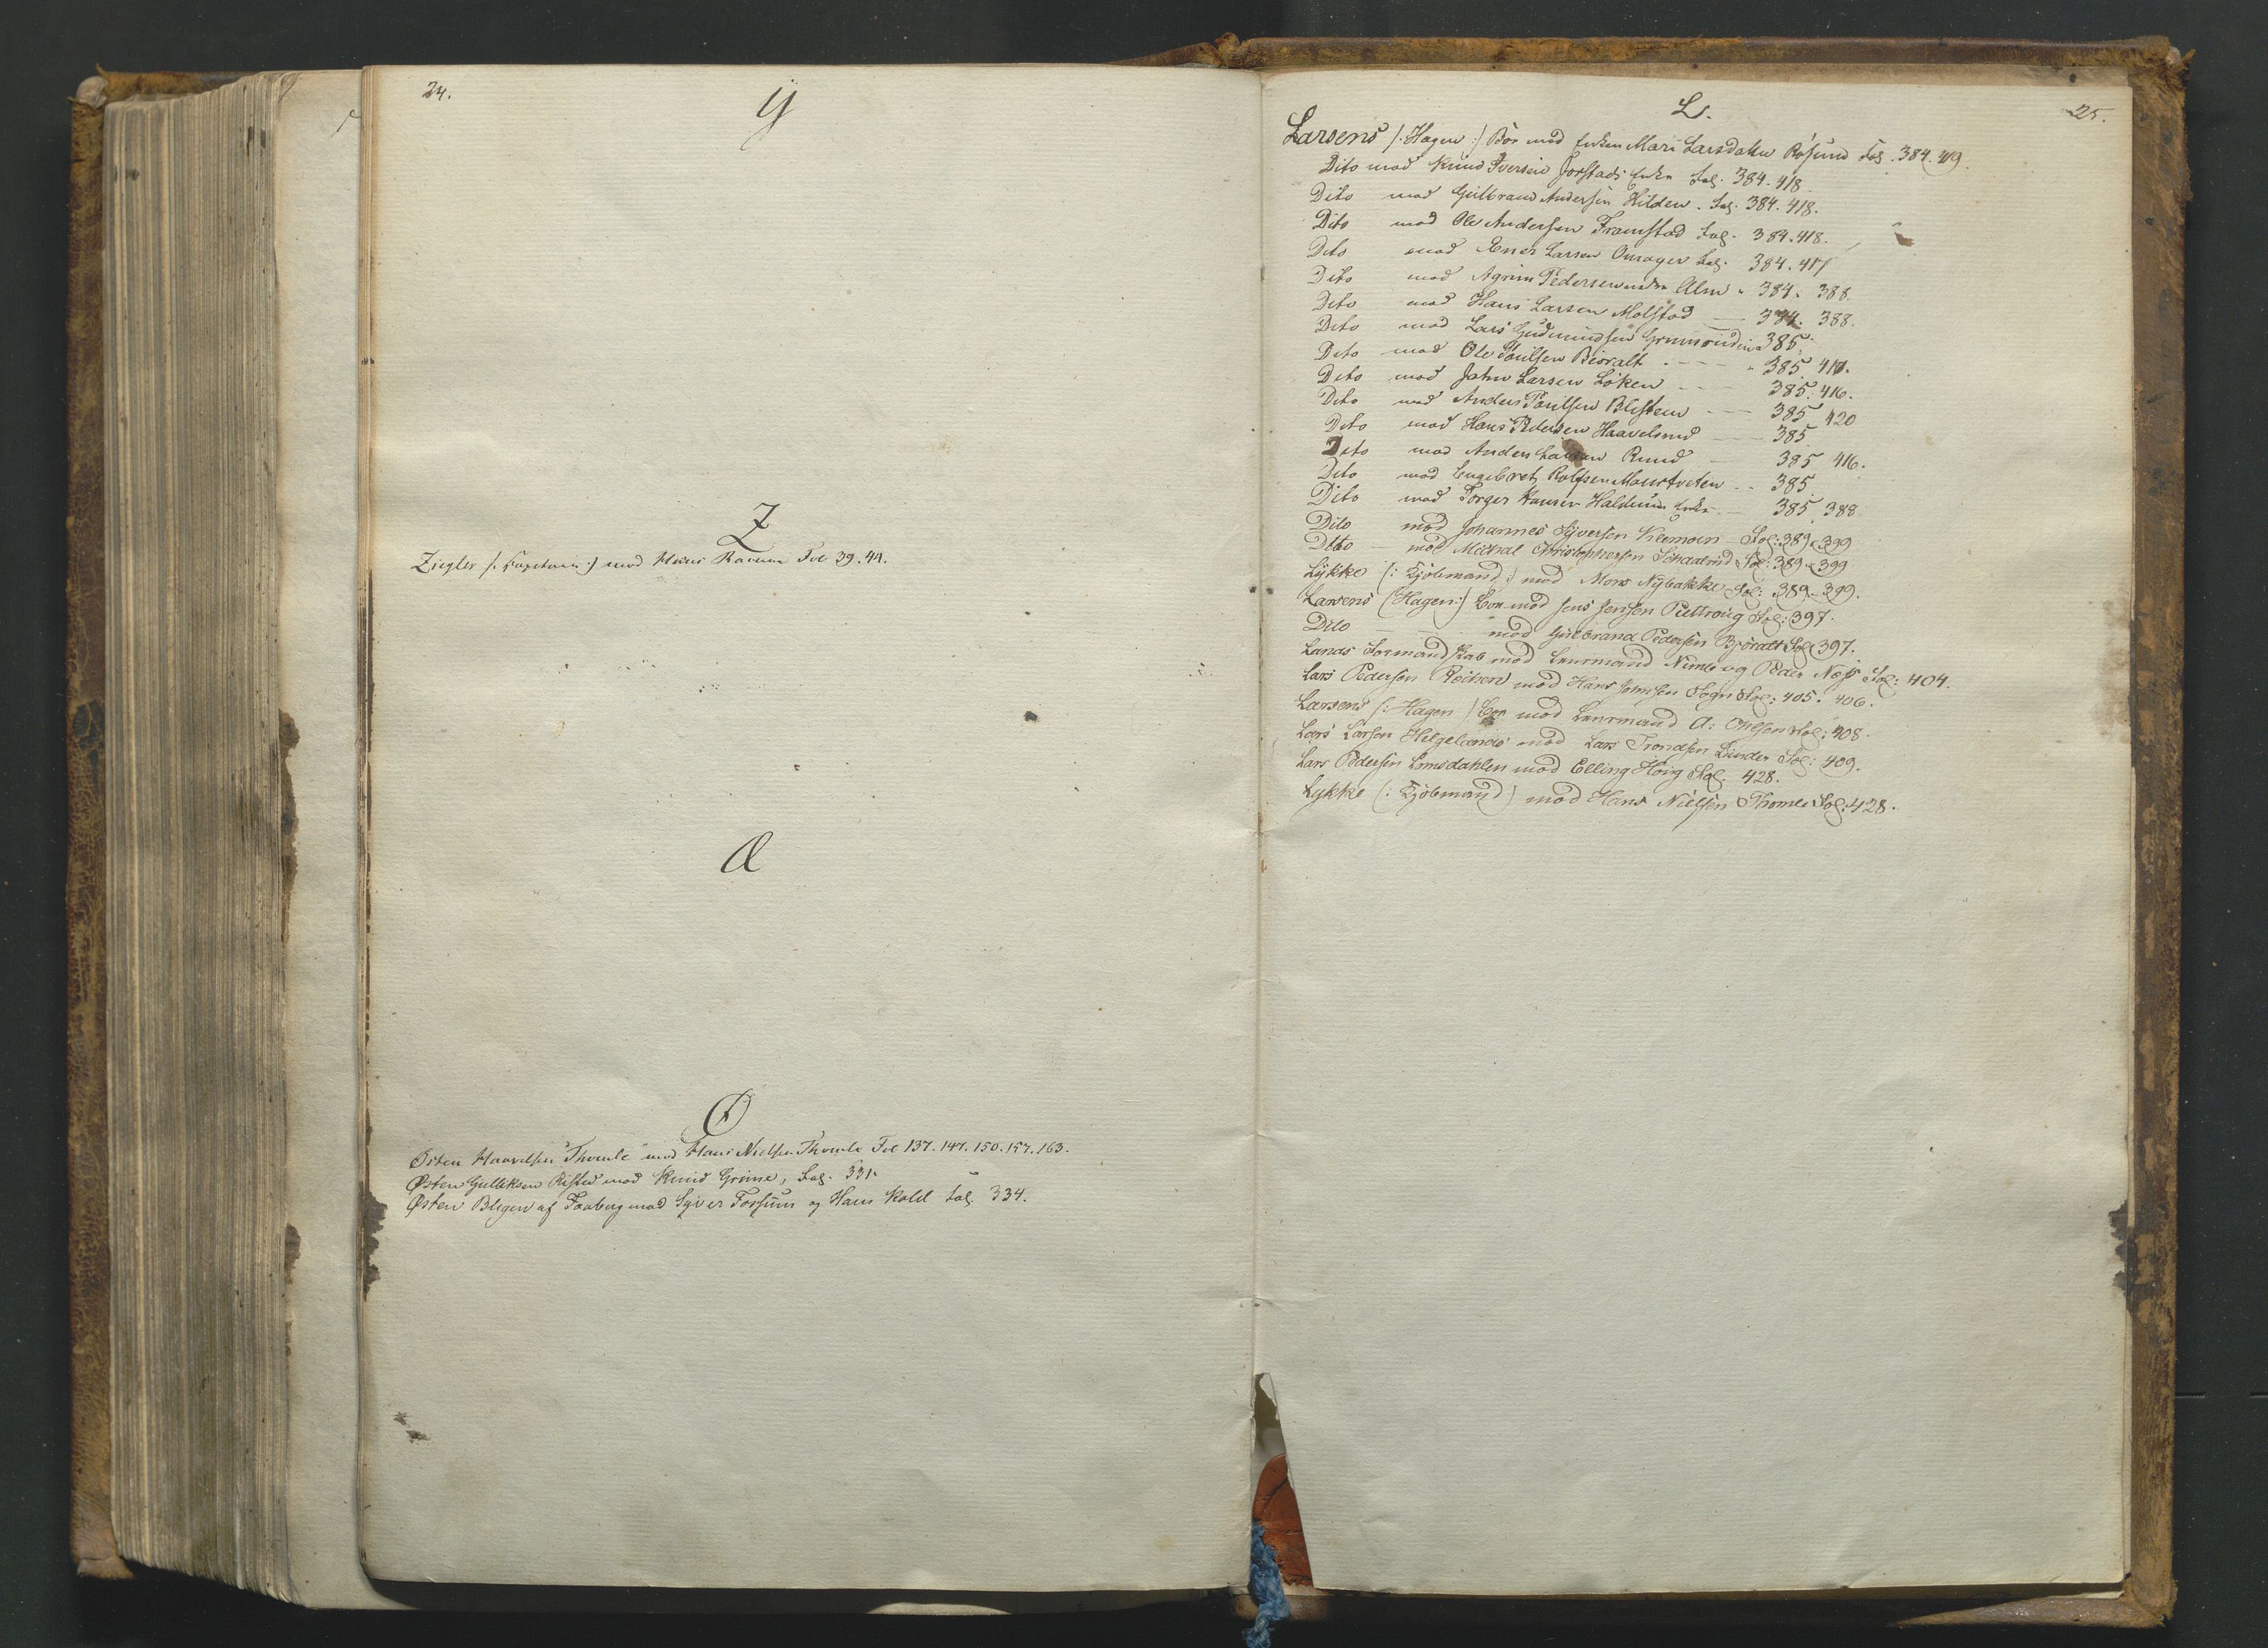 24.
Y
Z
Ziegler /: Capitain :/ mod Raanum Fol 39. 44.
Æ
Ø
Østen Haavelsen Thomle mod Hans Nielsen Thomle Fol 137. 147. 150. 157. 163.
Østen Gulliksen mod Knud Grime, Fol. 331.
Østen Blegen af Faaberg mod Syver Forsüm og Hans Kold Fol. 334.
25.
L.
Larsens /: Hagen :/ Boe mod Enken Mari Larsdatter Fol. 384. 419.
Dito mod Knud Iversen Jorstads Enke Fol. 384. 418.
Dito mod Gulbrand Andersen Hilden. Fol. 384. 418.
Dito mod Ole Andersen Framstad Fol. 384. 418.
Dito mod Ener Larsen Onsager Fol. 384. 417
Dito mod Pedersen Alm " 384. 388.
Dito mod Hans Larsen Molstad — 384. 388.
Dito mod Lars Gudmundsen 385.
Dito mod Ole Poulsen Bioralt - - - " 385.
Dito mod John Larsen Löken - - - 385. 416.
Dito mod Anders Poulsen Blesteen - — 385 420
Dito mod Hans Pedersen Haavelsrud — - 385
Dito mod Anders Larsen Ruud — 385 416.
Dito mod Engebret Rolfsen - - 385
Dito mod Torger Hansen Enke - — 385. 388
Dito mod Johannes Syversen Fol: 389. 399
Dito — mod Michal Christophersen Fol: 389. 399
Lykke (: Kjöbmand :) mod Mons Nybakke Fol: 389. 399.
Larsens (Hagen:) Boe mod Jens Jensen Fol: 397.
Dito — — " mod Gulbrand Pedersen Björalt Fol: 397.
Lands Formandskab mod Lensmand og Peder Næss Fol: 404.
Lars Pedersen mod Hans Johnsen Sogn Fol: 405. 406.
Larsens (: Hagen ) Boe mod Lensmand A: Ohlsen Fol: 408.
Lars Larsen Helgelands mod Lars Trondsen Fol: 409.
Lars Pedersen Lomsdahlen mod Elling Fol. 428.
Lykke (: Kjöbmand ) mod Hans Nielsen Thomle Fol: 428.